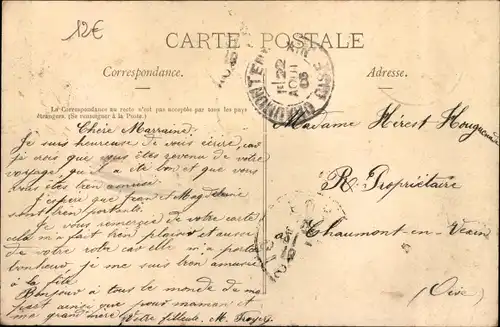 12€
CARTE POSTALE
Correspondance.
Adresse.
La Correspondance au recto n'est pas acceptée par tous les pays
étrangers. (Se renseigner à la Poste.)
22
AOUT
OISE
Chère Marraine
Je suis heureuse de vous écrire, car
je sais que vous êtes revenu de votre
voyage, qu'il a été bon et que vous
vous êtes bien amusé
J'espère que Jean et Magdeleine
sont bien portants.
Je vous remercie de votre carte
cela m'a fait bien plaisir et aussi
de votre robe car elle m'a porté
bonheur, je me suis bien amusée
à la fête
Bonjour à tous le monde de ma
part ainsi que pour maman et
ma grand'mère
Votre filleule. M.
Madame Hérest
R. Propriétaire
à Chaumont-en-Vexin
(Oise)